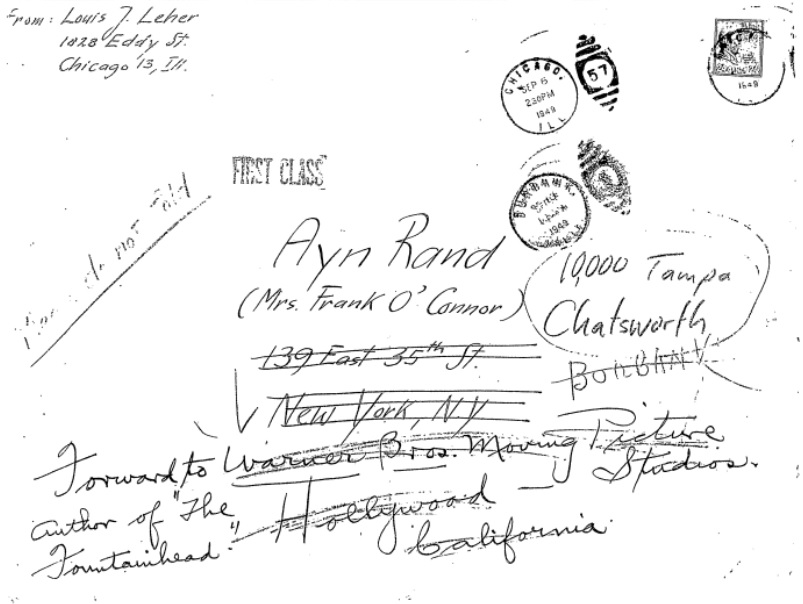 From: Louis J. Leher
1828 Eddy St.
Chicago 13, Ill.
CHICAGO,
SEP 6
230PM
1949
ILL
57
1949
FIRST CLASS
BURBANK,
1949
do not fold
Ayn Rand
(Mrs. Frank O'Connor)
10,000 Tampa
Chatsworth
139 East 35th St.
BURBANK
New York, N.Y
Forward to Warner Bros. Moving Picture
Studios.
author of "The
Fountainhead."
Hollywood
California